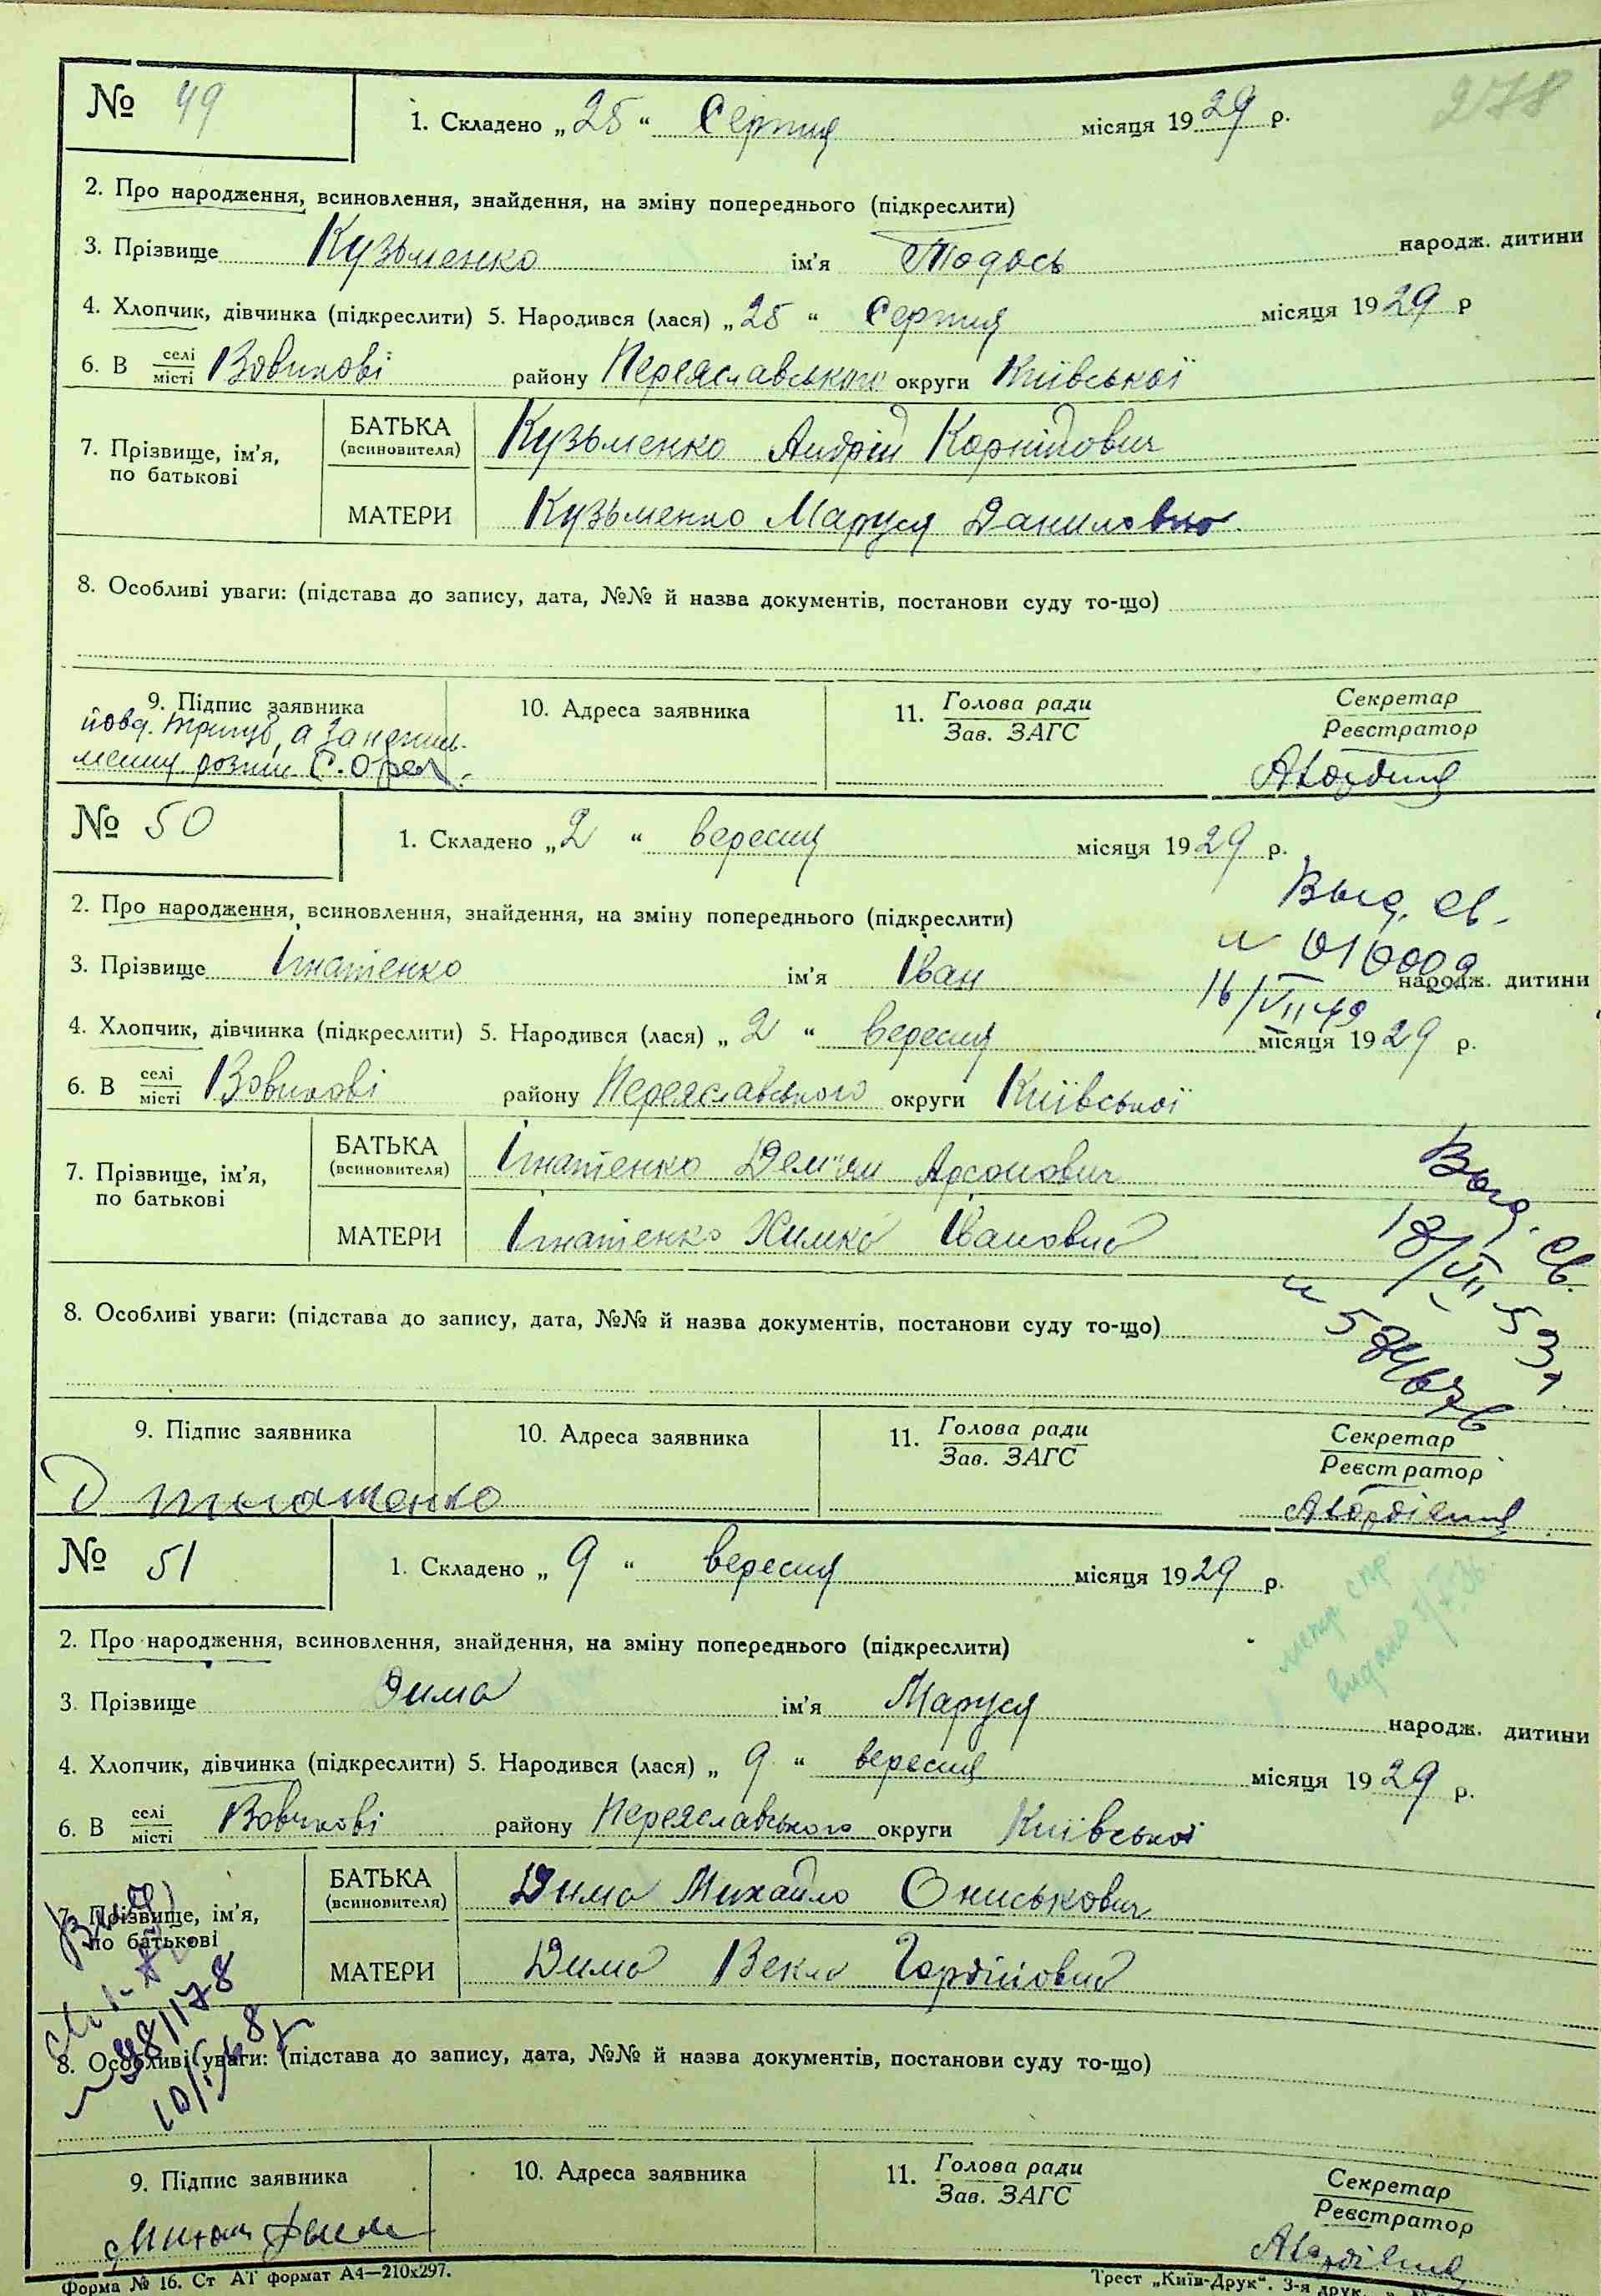 278
№ 49
1. Складено „ 25 “ Серпня місяця 1929 р.
2. Про народження, всиновлення, знайдення, на зміну попереднього (підкреслити)
3. Прізвище Кузьменко ім'я Тодось народж. дитини
4. Хлопчик, дівчинка (підкреслити) 5. Народився (лася) „ 25 “ Серпня місяця 1929 р
6. В селі місті Вовчкові району Переяславського округи Київської
7. Прізвище, ім'я, по батькові
БАТЬКА (всиновителя) Кузьменко Андрій Корнійович
МАТЕРИ Кузьменко Маруся Даниловна
8. Особливі уваги: (підстава до запису, дата, №№ й назва документів, постанови суду то-що)
9. Підпис заявника
розпи. С. Орел
10. Адреса заявника
11. Голова ради Зав. ЗАГС
Секретар Реєстратор
№ 50
1. Складено „ 2 “ вересня місяця 1929 р.
Выд. св.
2. Про народження, всиновлення, знайдення, на зміну попереднього (підкреслити)
3. Прізвище Ігнатенко ім'я Іван народж. дитини
16/VII 49
4. Хлопчик, дівчинка (підкреслити) 5. Народився (лася) „ 2 “ вересня місяця 1929 р.
6. В селі місті Вовчкові району Переяславського округи Київської
7. Прізвище, ім'я, по батькові
БАТЬКА (всиновителя) Ігнатенко Дем'ян Арсонович
МАТЕРИ Ігнатенко Химка Івановна
Выд. св.
18/VII 53
8. Особливі уваги: (підстава до запису, дата, №№ й назва документів, постанови суду то-що)
9. Підпис заявника
Д Игнатенко
10. Адреса заявника
11. Голова ради Зав. ЗАГС
Секретар Реєстратор
№ 51
1. Складено „ 9 “ вересня місяця 1929 р.
метр. стр.
видано
2. Про народження, всиновлення, знайдення, на зміну попереднього (підкреслити)
3. Прізвище Дима ім'я Маруся народж. дитини
4. Хлопчик, дівчинка (підкреслити) 5. Народився (лася) „ 9 “ вересня місяця 1929 р.
6. В селі місті Вовчкові району Переяславського округи Київської
7. Прізвище, ім'я, по батькові
БАТЬКА (всиновителя) Дима Михайло Ониськович
МАТЕРИ Дима Векла Гордійовна
8. Особливі уваги: (підстава до запису, дата, №№ й назва документів, постанови суду то-що)
9. Підпис заявника
10. Адреса заявника
11. Голова ради Зав. ЗАГС
Секретар Реєстратор
Форма № 16. Ст АТ формат А4—210х297.
Трест „Київ-Друк“. 3-я друк.